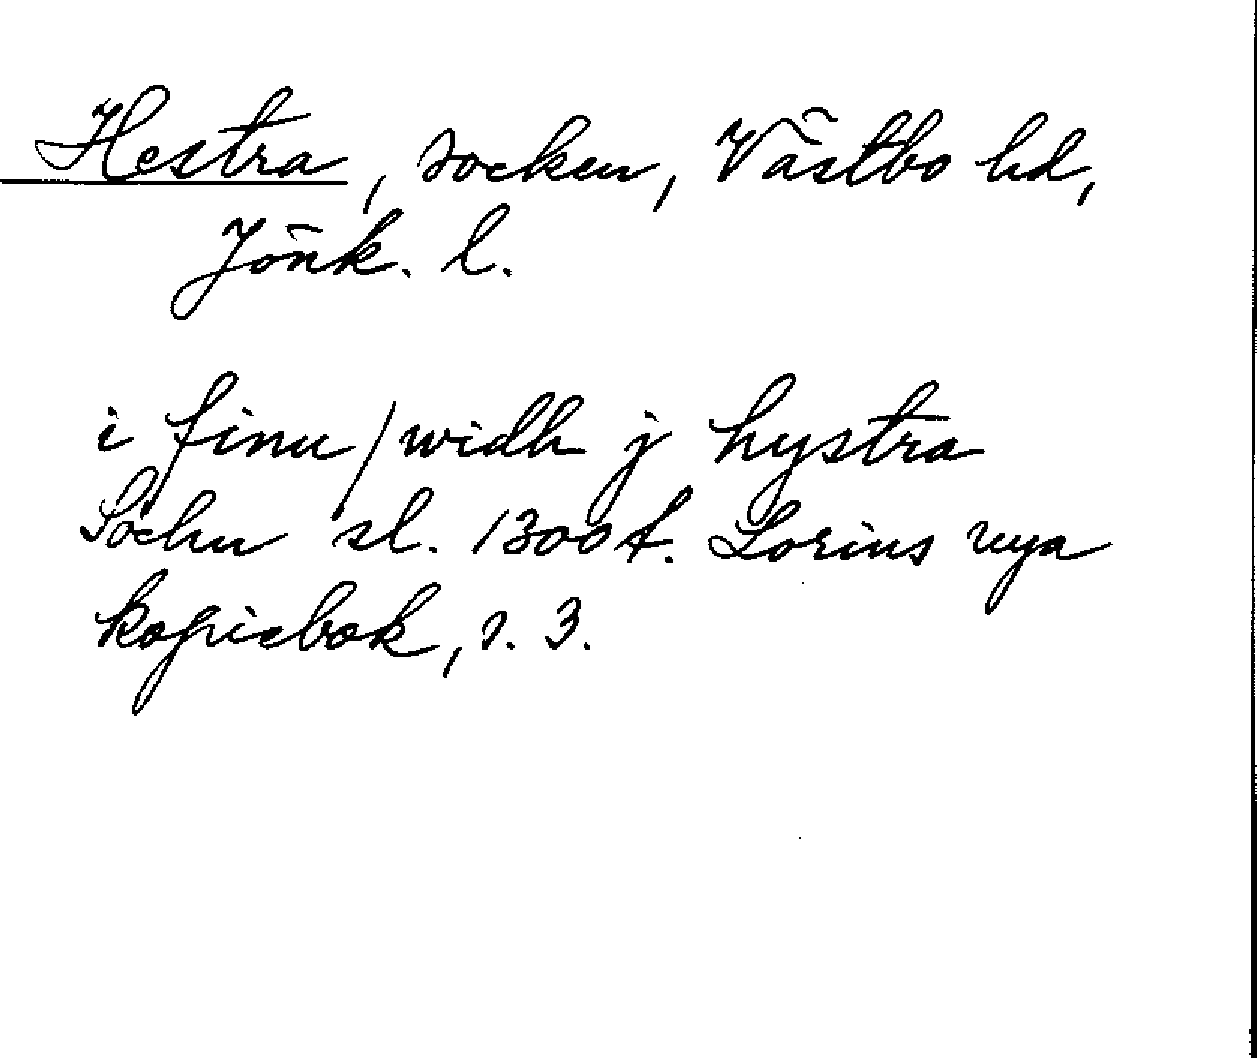 Hestra, socken, Västbo hd,
Jönk. l.
i finu/widh j hystra
Sochn sl. 1300t. Lorius nya
kopiebok, s. 3.